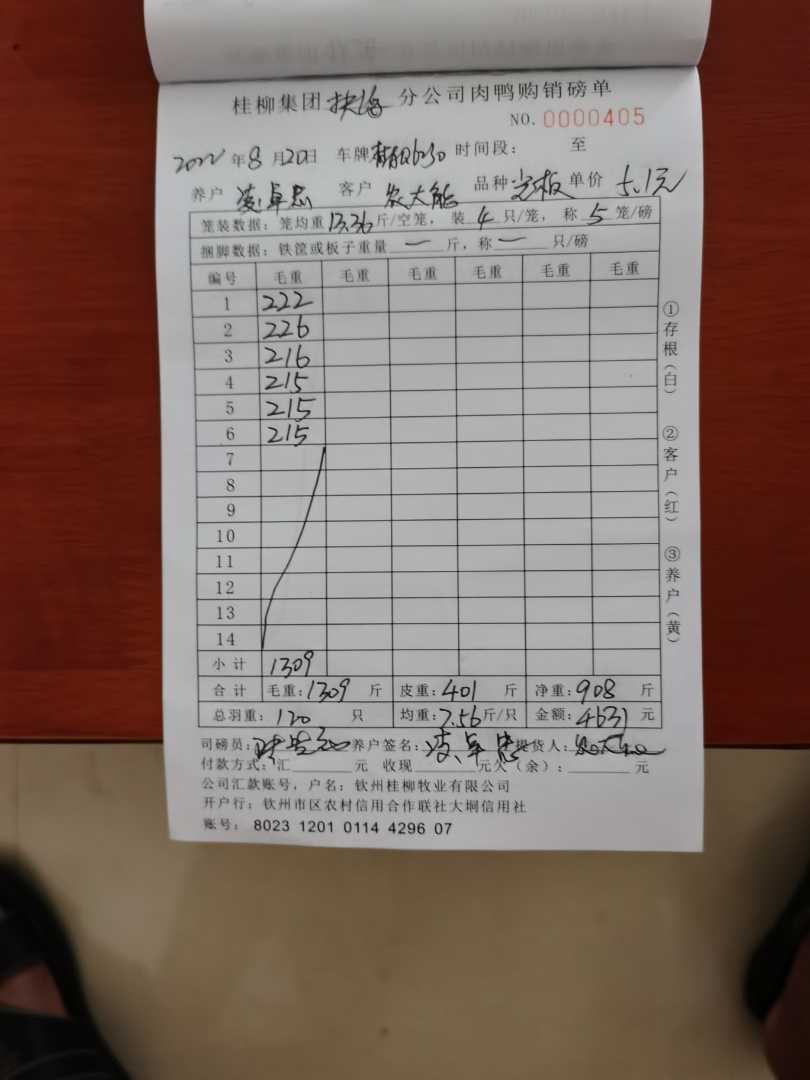 桂柳集团 扶绥 分公司肉鸭购销磅单
NO. 0000405
2022年8月20日 车牌 Q6730 时间段： 至
养户 凌卓忠 客户 农大能 品种 光板 单价 5.1元
笼装数据：笼均重13.36斤/空笼，装4只/笼，称5笼/磅
捆脚数据：铁筐或板子重量 一 斤，称 一 只/磅
编号 毛重 毛重 毛重 毛重 毛重 毛重
1 222
2 226
3 216
4 215
5 215
6 215
7
8
9
10
11
12
13
14
小计 1309
合计 毛重：1309 斤 皮重：401 斤 净重：908 斤
总羽重：120 只 均重：7.56斤/只 金额：4631 元
司磅员： 养户签名：凌卓忠 提货人：农大能
付款方式：汇 元 收现 元欠（余）： 元
公司汇款账号，户名：钦州桂柳牧业有限公司
开户行：钦州市区农村信用合作联社大垌信用社
账号：8023 1201 0114 4296 07
①存根（白）
②客户（红）
③养户（黄）